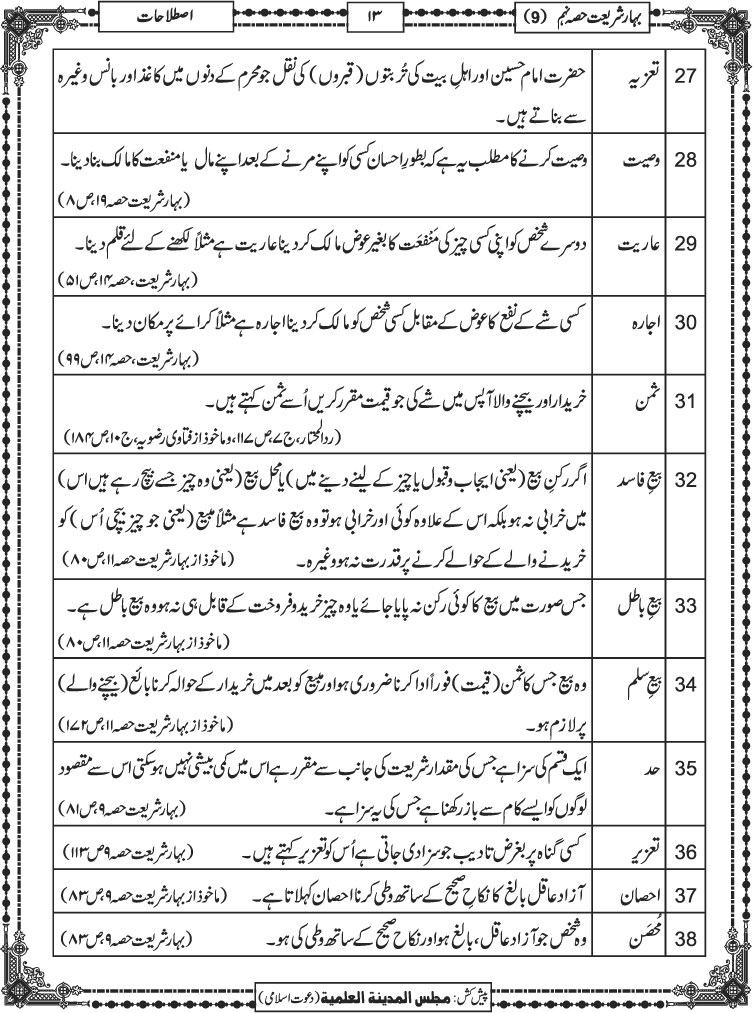 بہار شریعت حصہ نہم (9)
۱۳
اصطلاحات
27 تعزیہ حضرت امام حسین اور اہلِ بیت کی تُربتوں (قبروں) کی نقل جو محرم کے دنوں میں کاغذ اور بانس وغیرہ
سے بناتے ہیں۔
28 وصیت وصیت کرنے کا مطلب یہ ہے کہ بطورِ احسان کسی کو اپنے مرنے کے بعد اپنے مال یا منفعت کا مالک بنا دینا۔
(بہار شریعت حصہ ۱۹، ص ۸)
29 عاریت دوسرے شخص کو اپنی کسی چیز کی مَنْفَعَت کا بغیر عوض مالک کر دینا عاریت ہے مثلاً لکھنے کے لئے قلم دینا۔
(بہار شریعت، حصہ ۱۴، ص ۵۱)
30 اجارہ کسی شے کے نفع کا عوض کے مقابل کسی شخص کو مالک کر دینا اجارہ ہے مثلاً کرائے پر مکان دینا۔
(بہار شریعت، حصہ ۱۴، ص ۹۹)
31 ثمن خریدار اور بیچنے والا آپس میں شے کی جو قیمت مقرر کریں اُسے ثمن کہتے ہیں۔
(ردالمحتار، ج ۷، ص ۱۱۷، وماخوذ از فتاوی رضویہ، ج ۱۰، ص ۱۸۴)
32 بیعِ فاسد اگر رکنِ بیع (یعنی ایجاب وقبول یا چیز کے لینے دینے میں) یا محل بیع (یعنی وہ چیز جسے بیچ رہے ہیں اس)
میں خرابی نہ ہو بلکہ اس کے علاوہ کوئی اور خرابی ہو تو وہ بیع فاسد ہے مثلاً مبیع (یعنی جو چیز بیچی اُس) کو
خریدنے والے کے حوالے کرنے پر قدرت نہ ہو وغیرہ۔ (ماخوذ از بہار شریعت حصہ ۱۱، ص ۸۰)
33 بیعِ باطل جس صورت میں بیع کا کوئی رکن نہ پایا جائے یا وہ چیز خرید و فروخت کے قابل ہی نہ ہو وہ بیع باطل ہے۔
(ماخوذ از بہار شریعت حصہ ۱۱، ص ۸۰)
34 بیعِ سلم وہ بیع جس کا ثمن (قیمت) فوراً ادا کرنا ضروری ہو اور مبیع کو بعد میں خریدار کے حوالہ کرنا بائع (بیچنے والے)
پر لازم ہو۔ (ماخوذ از بہار شریعت حصہ ۱۱، ص ۱۷۲)
35 حد ایک قسم کی سزا ہے جس کی مقدار شریعت کی جانب سے مقرر ہے اس میں کمی بیشی نہیں ہو سکتی اس سے مقصود
لوگوں کو ایسے کام سے باز رکھنا ہے جس کی یہ سزا ہے۔ (بہار شریعت حصہ ۹، ص ۸۱)
36 تعزیر کسی گناہ پر بغرض تادیب جو سزا دی جاتی ہے اُس کو تعزیر کہتے ہیں۔ (بہار شریعت حصہ ۹ ص ۱۱۳)
37 احصان آزاد عاقل بالغ کا نکاحِ صحیح کے ساتھ وطی کرنا احصان کہلاتا ہے۔ (ماخوذ از بہار شریعت حصہ ۹، ص ۸۳)
38 مُحْصَن وہ شخص جو آزاد عاقل، بالغ ہو اور نکاح صحیح کے ساتھ وطی کی ہو۔ (بہار شریعت حصہ ۹، ص ۸۳)
پیش کش: مجلس المدینۃ العلمیۃ (دعوت اسلامی)